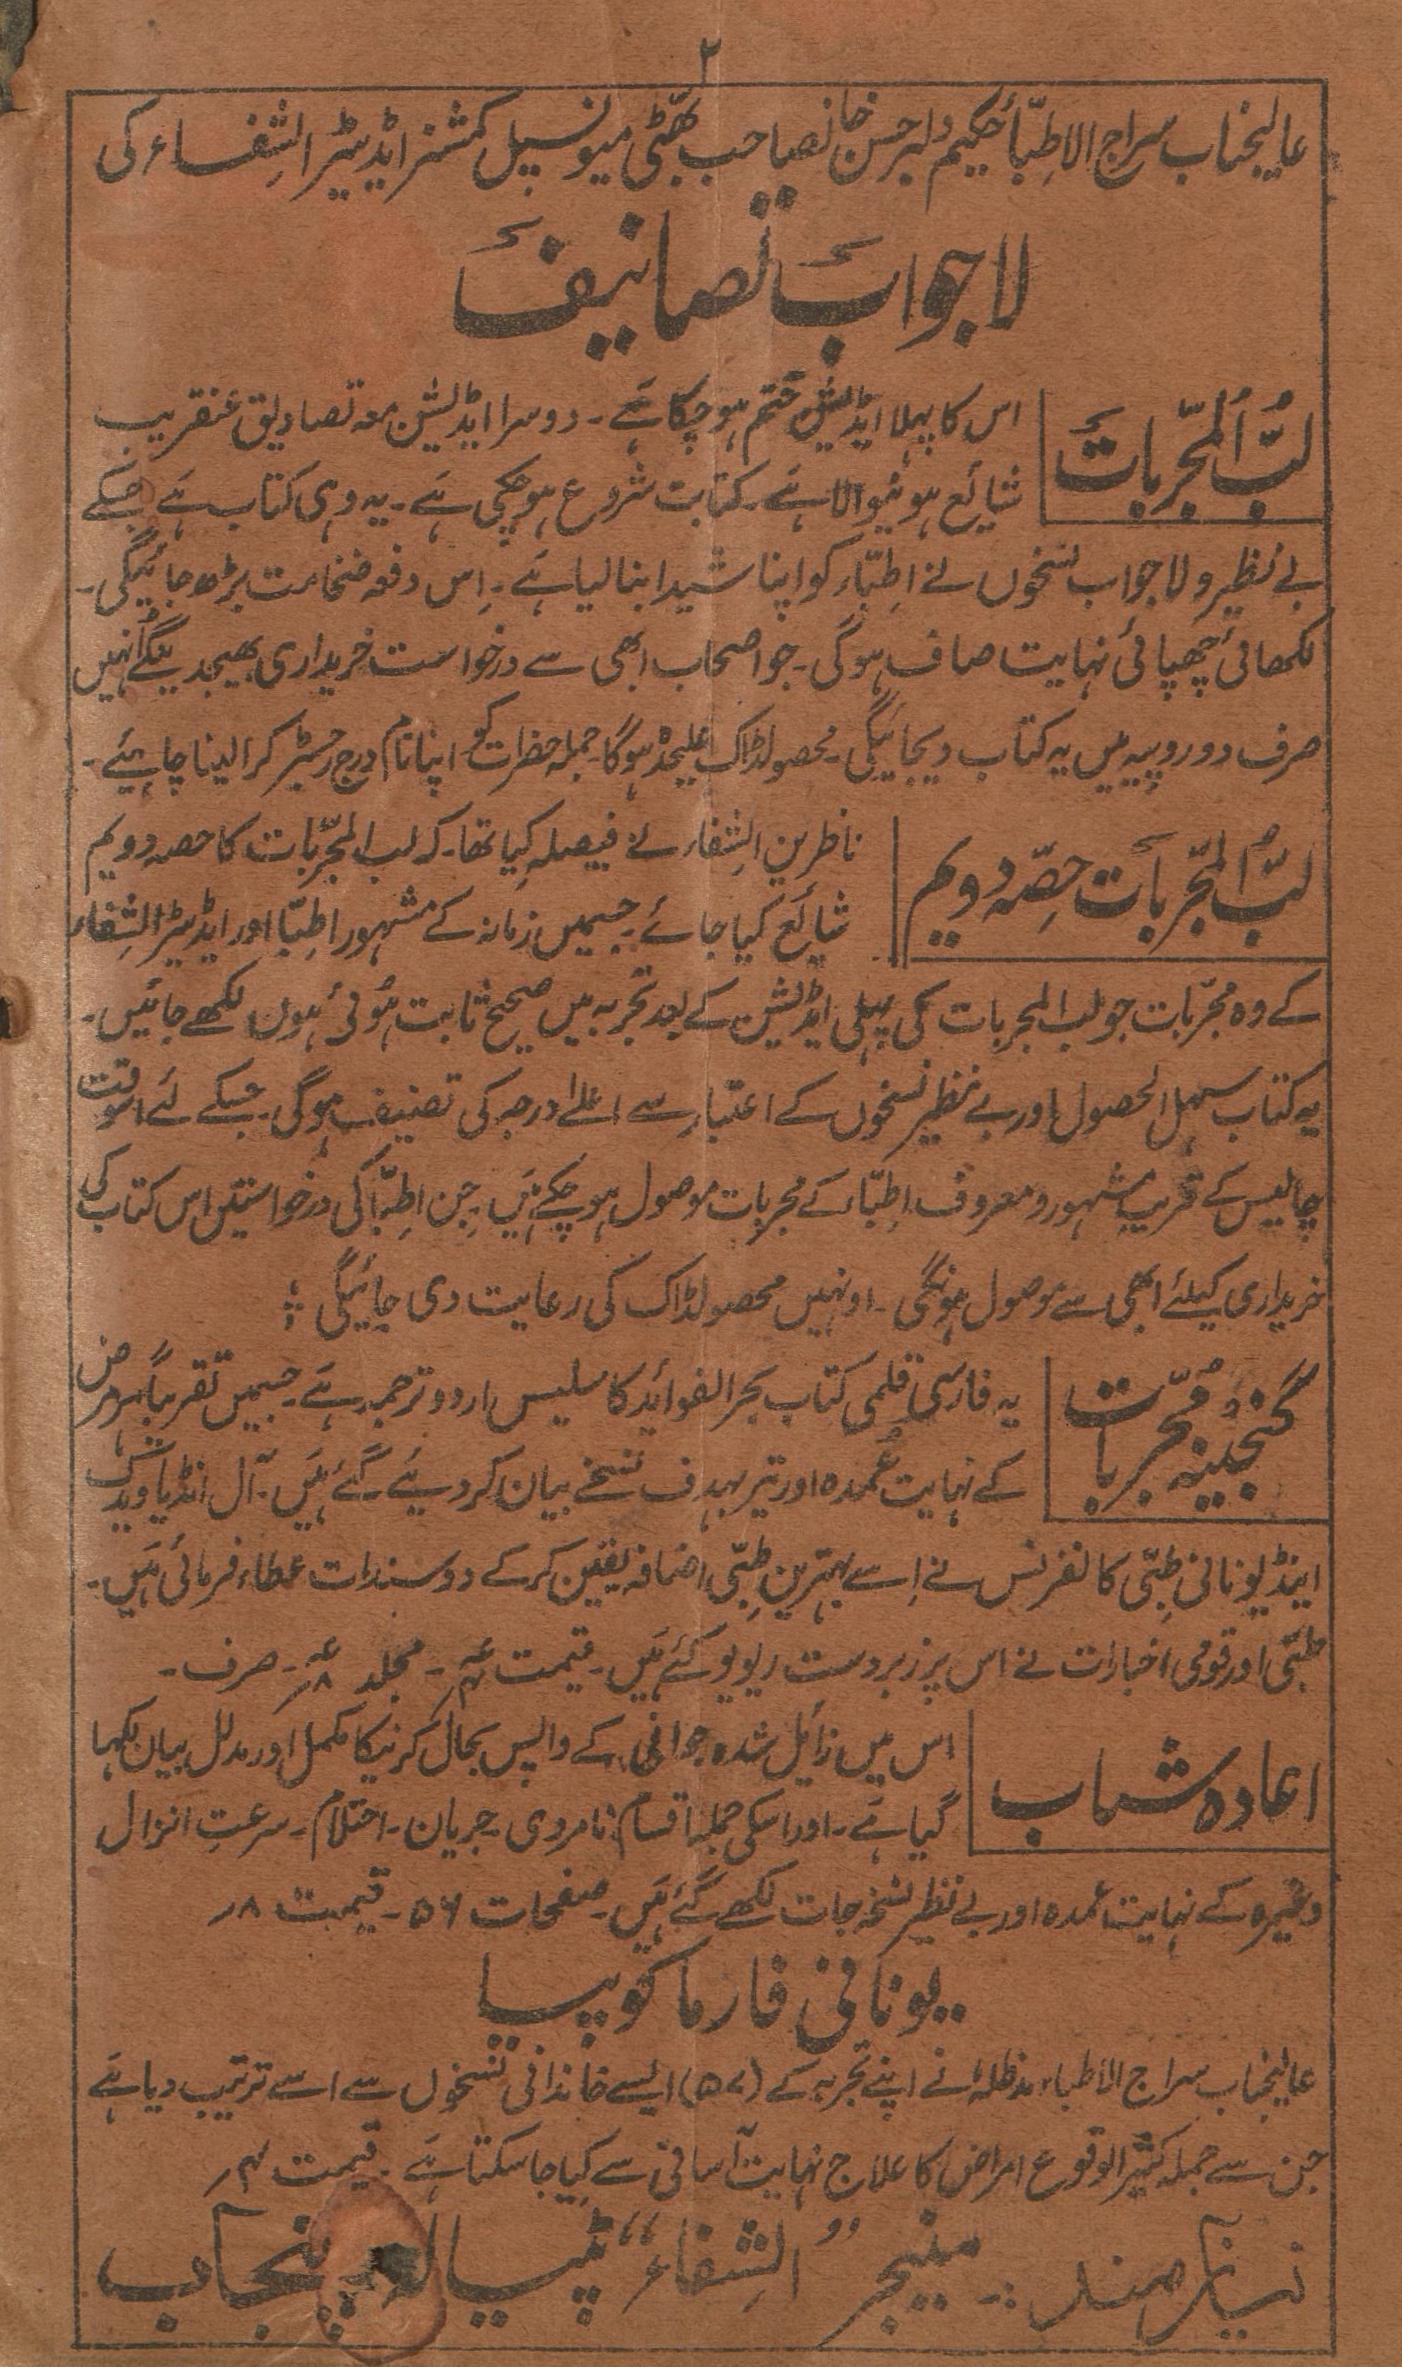 ۲
عالیجناب سراج الاطبّأ حکیم دلبر حسن خانصاحب بھٹّی میونسپل کمشنر ایڈیٹر الشِفاء کی
لاجوابَ تصانیفَ
لبُّ المُجرّباتَ
اس کا پہلا ایڈیشن ختم ہو چکا ہَے ۔ دوسرا ایڈیشن معہ تصادیق عنقریب
شایٔع ہونیوالا ہَے ۔ کتابت شروع ہو چکی ہَے ۔ یہ وہی کتاب ہَے جسکے
بے نظیر و لاجواب نسخوں نے اطِبّاء کو اپنا شیدا بنا لیا ہَے ۔ اِس دفعہ ضخامت بڑھ جائیگی ۔
لکھائی چھپائی نہایت صاف ہوگی ۔ جو اصحاب ابھی سے درخواست خریداری بھیجدینگے اُنہیں
صرف دو روپیہ میں یہ کتاب دیجائیگی ۔ محصولڈاک علیحدہ ہوگا ۔ جملہ حضرات کو اپنا نام درج رجسٹر کرا لینا چاہئیے ۔
لبُّ المجّرباتَ حِصّہ دویم
ناظرین الشِفاء نے فیصلہ کِیا تھا ۔ کہ لب المجّربات کا حصہ دویم
شائع کیا جائے ۔ جسمیں زمانہ کے مشہور اطِبّا اور ایڈیٹر الشِفاء
کے وہ مجرّبات جو لب المجربات کی پہلی ایڈیشن کے بعد تجربہ میں صحیح ثابت ہُوئی ہوں لکھے جائیں ۔
یہ کتاب سہل الحصول اور بے نظیر نسخوں کے اعتبار سے اعلےٰ درجہ کی تصنیف ہوگی ۔ جسکے لئے اسوقت
چالیس کے قریب مشہور و معروف اطِبّاء کے مجربات موصول ہو چکے ہَیں ۔ جِن اطِبّا کی درخواستیں اس کتاب کی
خریداری کیلئے ابھی سے موصول ہونگی ۔ اونہیں محصولڈاک کی رعایت دی جائیگی ؛
گنجینہ مُجرّبات
یہ فارسی قلمی کتاب بحر الفوائد کا سلیس اردو ترجمہ ہَے ۔ جسمیں تقریباً ہر مرض
کے نہایت عُمدہ اور تیر بہدف نسخے بیان کر دیئے گئے ہَیں ۔ آل انڈیا ویدک
اینڈ یونانی طِبّی کانفرنس نے اِسے بہترین طِبّی اضافہ یقین کر کے دو سندات عطاء فرمائی ہَیں ۔
طبّی اور قومی اخبارات نے اس پر زبردست ریویو کئے ہَیں ۔ قیمت ۔ مجلد ۔ صرف ۔
اعادہ شباب
اس میں زائل شدہ جوانی کے واپس بحال کرنیکا مکمل اور مدلل بیان لکھا
گیا ہَے ۔ اور اسکی جملہ اقسام نامردی ۔ جریان ۔ احتلام ۔ سرعتِ انزال
وغیرہ کے نہایت عمدہ اور بے نظیر نسخہ جات لکھے گئے ہَیں ۔ صفحات ۵۶ ۔ قیمت ۸؍
یونانی فارماکوپیا
عالیجناب سراج الاطباء مدظلہٗ نے اپنے تجربہ کے (۵۷) ایسے خاندانی نسخوں سے اسے ترتیب دیا ہَے
جن سے جملہ کثیر الوقوع امراض کا علاج نہایت آسانی سے کِیا جا سکتا ہَے ۔ قیمت ۴؍
نیاز مند :۔ مینیجر ”الشِفاء“ پٹیالہ پنجاب